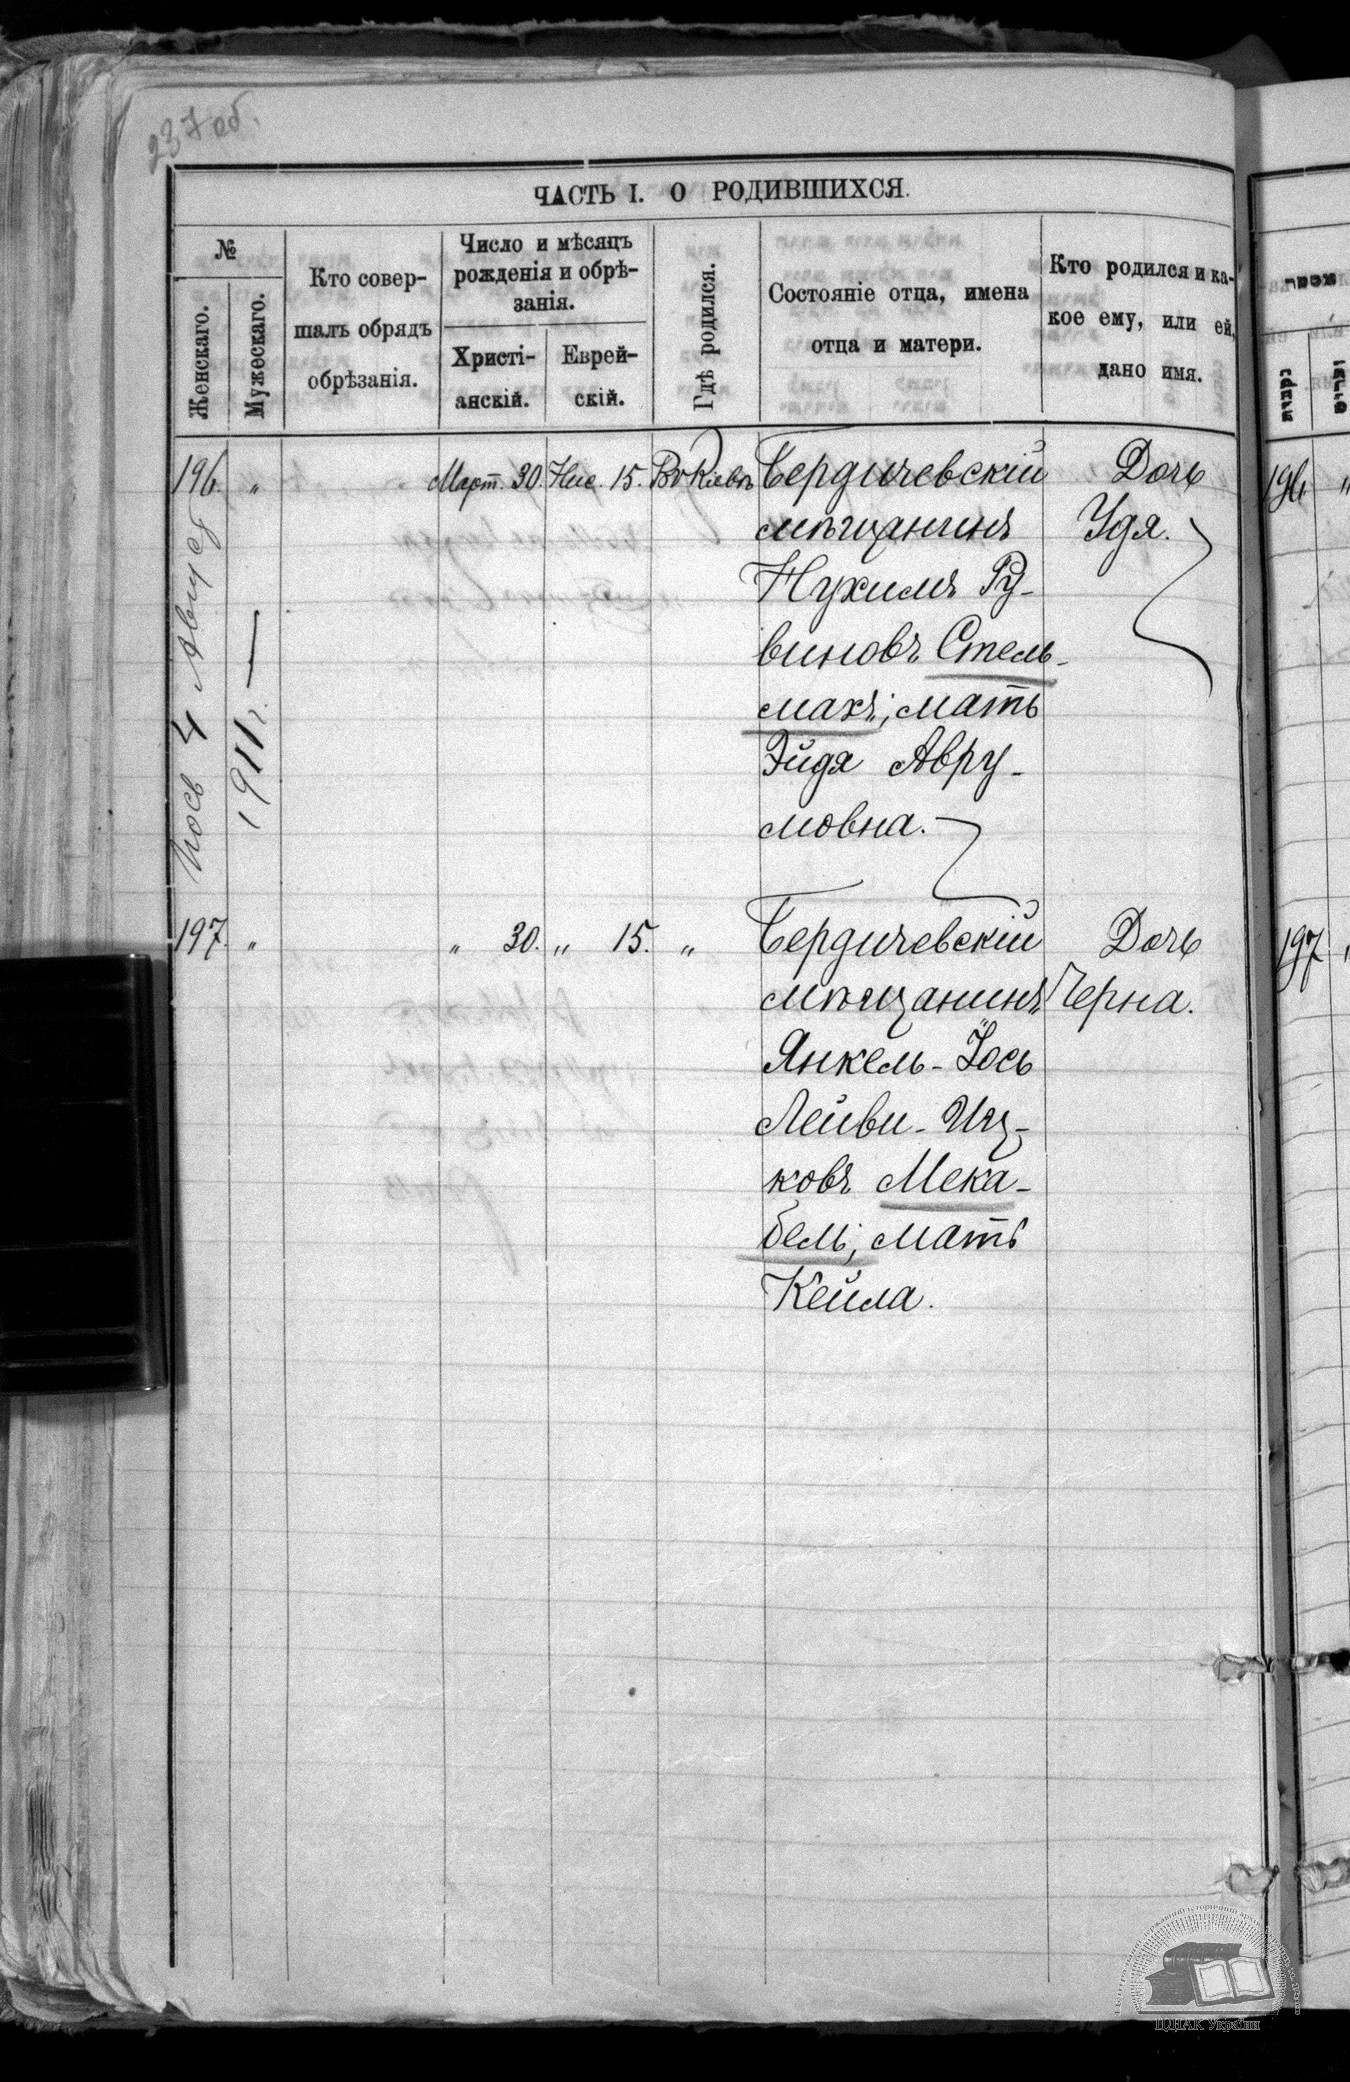 237 об.
ЧАСТЬ I. О РОДИВШИХСЯ.
№
Женскаго.
Мужескаго.
Кто совер-
шалъ обрядъ
обрѣзанія.
Число и мѣсяцъ
рожденія и обрѣ-
занія.
Христі-
анскій.
Еврей-
скій.
Гдѣ родился.
Состояніе отца, имена
отца и матери.
Кто родился и ка-
кое ему, или ей,
дано имя.
196. „ Март. 30. Нис. 15. Въ Кіевѣ Бердичевскій Дочь
мѣщанинъ Удя.
Нухимъ Ру-
виновъ Стель-
махъ; мать
Эйдя Авру-
мовна.
4 Август
1911 г.
197. „ „ 30. „ 15. „ Бердичевскій Дочь
мѣщанинъ Черна.
Янкель-Іось
Лейви-Иц-
ковъ Мека-
бель; мать
Кейла.
196 „
197 „
ЦДІАК України